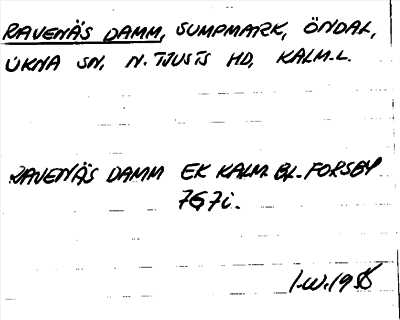 RAVENÄS DAMM, SUMPMARK, ÖNDAL,
UKNA SN, N. TJUSTS HD, KALM.L.
RAVENÄS DAMM EK KALM BL. FORSBY
7G7i.
I.W.19